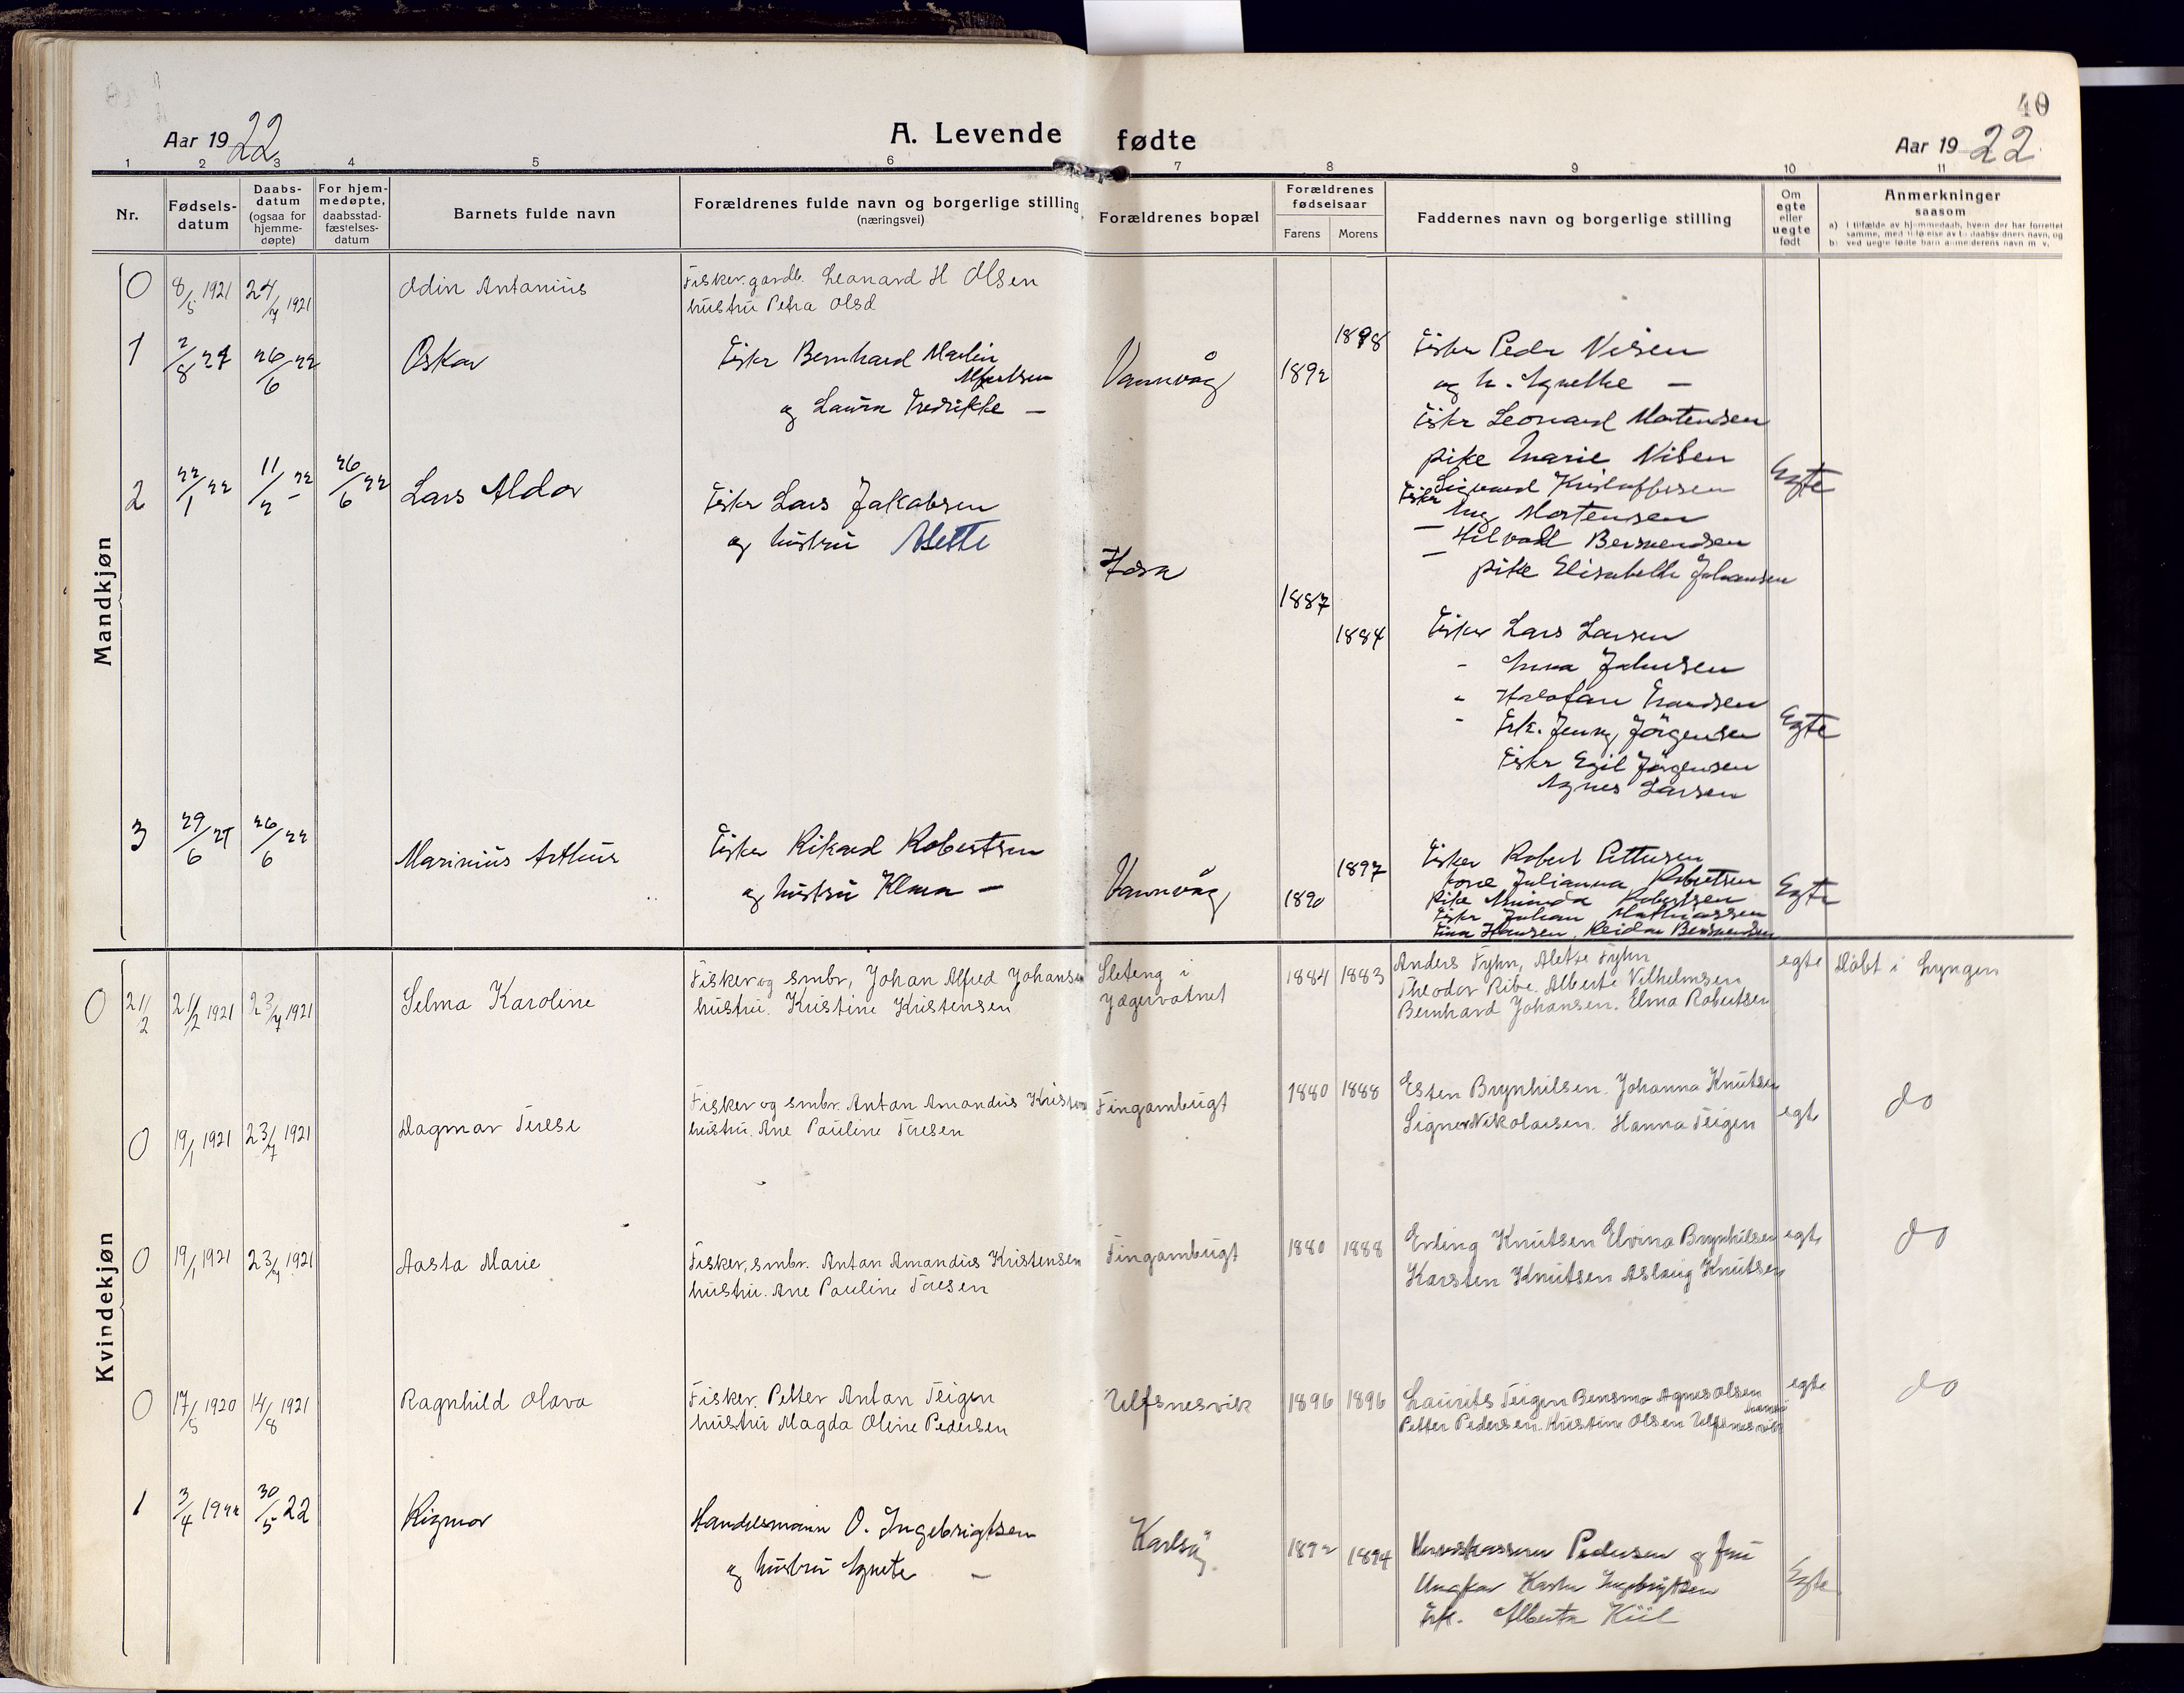 40
Aar 1922
A. Levende fødte
Aar 1922
1 2 3 4 5 6 7 8 9 10 11
Nr.
Fødsels-
datum
Daabs-
datum
(ogsaa for
hjemme-
døpte)
For hjem-
medøpte,
daabsstad-
fæstelses-
datum
Barnets fulde navn
Forældrenes fulde navn og borgerlige stilling
(næringsvei)
Forældrenes bopæl
Forældrenes
fødselsaar
Farens Morens
Faddernes navn og borgerlige stilling
Om
egte
eller
uegte
født
Anmerkninger
saasom
a) i tilfælde av hjemmedaab, hvem der har forrettet
samme, med tilføielse av to daabsvidners navn, og
b) ved uegte fødte barn anmelderens navn m. v.
Mandkjøn
0 8/5 1921 24/7 1921 Odin Antonius
Fisker, gardb. Leonard H Olsen
hustru Petra Olsd
1 2/8 21 26/6 22 Oskar
Fisker Bernhard Martin
Alfredsen
og Laura Fredrikke —
Vannvåg 1892 1898
Fisker Peder Nilsen
og h. Agnethe —
Fisker Leonard Mortensen
pike Marie Nilsen
Fisker Sigvard Kristoffersen
— Mortensen
— Hilvald Berntsen
pike Elisabeth Johansen
Egte
2 22/1 22 11/2 22 26/6 22 Lars Aldor
Fisker Lars Jakobsen
og hustru Alette
1887 1884
Fisker Lars Larsen
- Anna Johnsen
- Hansen
- Frk. Jenny Jørgensen
Fisker Egil Jørgensen
Agnes Larsen
Egte
3 29/6 21 26/6 22 Marinius Arthur
Fisker Rikard Robertsen
og hustru Elma —
Vannvåg 1890 1897
Fisker Robert
kone Julianna Robertsen
pike Robertsen
Fisker Johan Mathiassen
Hansen. Reidar
Egte
Kvindekjøn
0 21/2 21/2 1921 23/7 1921 Selma Karoline
Fisker og smbr, Johan Alfred Johansen
hustru. Kristine Kristensen
Sleteng i
Jægervatnet
1884 1883
Anders Fyhn, Alette Fyhn
Theodor Ribe. Alberte Vilhelmsen
Bernhard Johansen. Elma Robertsen
egte Døbt i Lyngen
0 19/1 1921 23/7 1921 Dagmar Terese
Fisker og smbr. Anton Amandus Kristens
hustru. Ane Pauline Toresen
Fingambugt 1880 1888
Esten Brynhilsen. Johanna Knutsen
Signer Nikolaisen. Hanna Teigen
egte do
0 19/1 1921 23/7 1921 Aasta Marie
Fisker, smbr. Anton Amandus Kristensen
hustru. Ane Pauline Toresen
Fingambugt 1880 1888
Erling Knutsen Elvina Brynhilsen
Karsten Knutsen Aslaug Knutsen
egte do
0 17/5 1920 14/8 1921 Ragnhild Olava
Fisker. Petter Anton Teigen
hustru Magda Oline Pedersen
Ulfsnesvik 1896 1896
Laurits Teigen Agnes Olsen
Petter Pedersen. Kristine Olsen Ulfsnesvik
egte do
1 3/4 1922 30/5 22 Rigmor
Handelsmann O. Ingebrigtsen
og hustru Agnete —
Karlsøy 1892 1894
Pedersen og frue
Ungkar Ingebrigtsen
Frk. Alberta Kiil
Egte